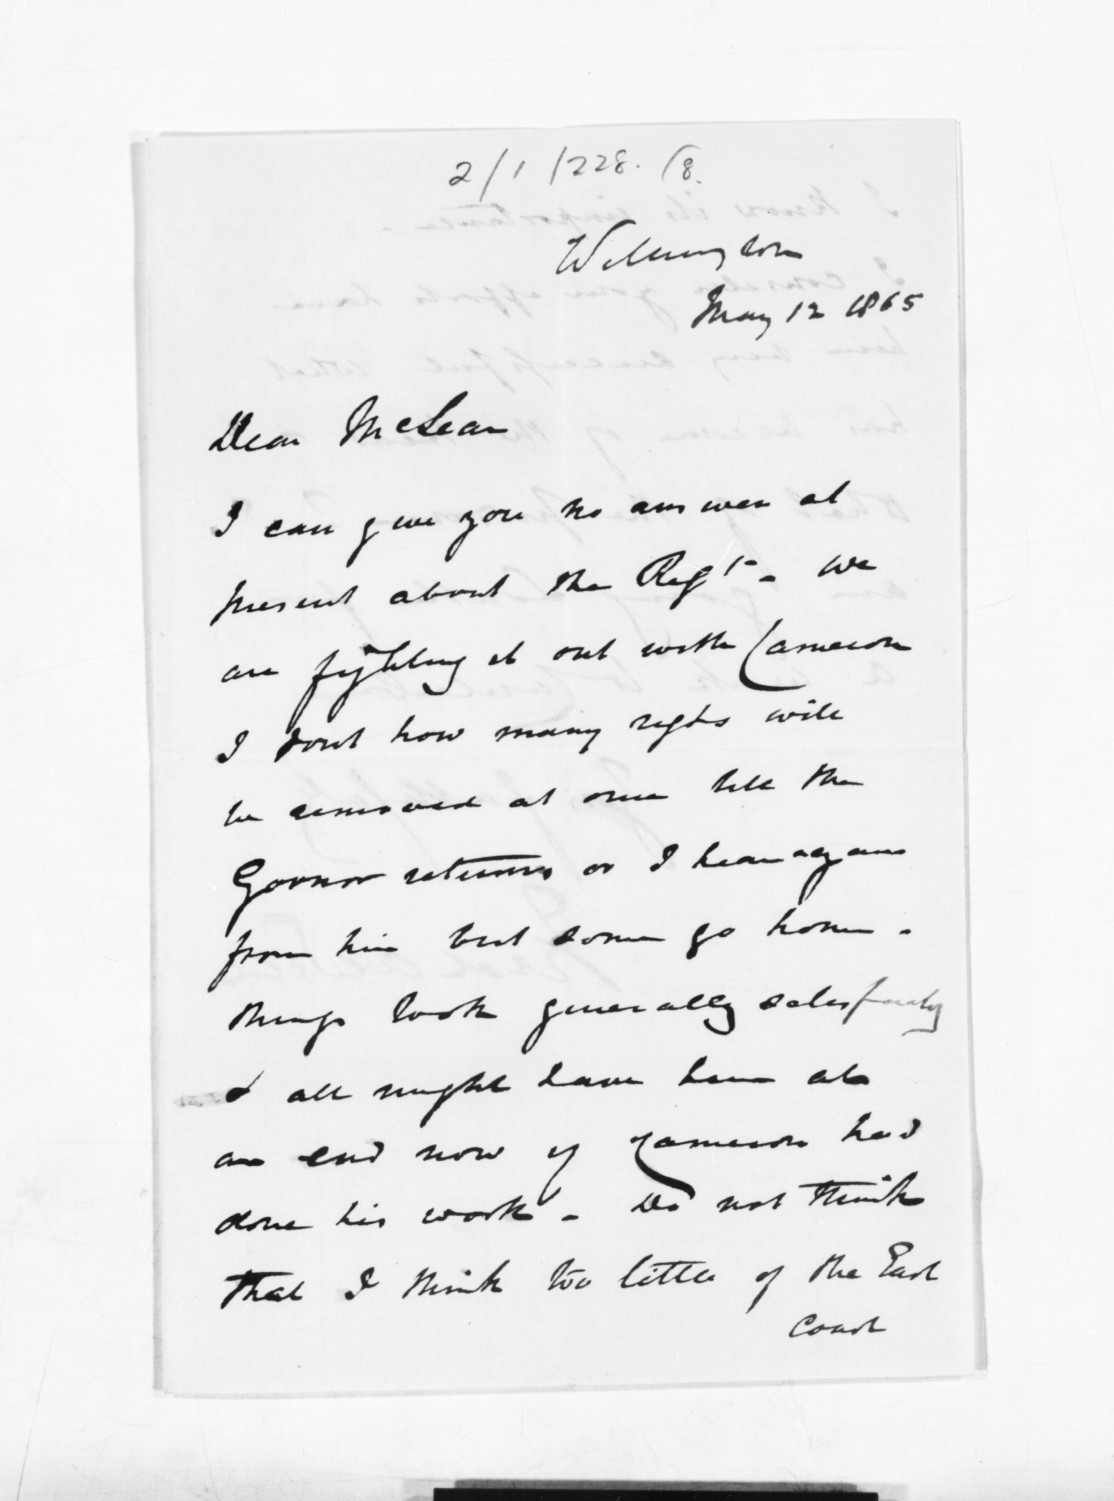 2/1/228. (8.
Wellington
May 12 1865
Dear McLean
I can give you no answer at
present about the Regt. we
are fighting it out with Cameron
I dont how many regts will
be removed at once till the
Govnor returns or I hear again
from him but some go home.
things look generally satisfactly
& all might have been at
an end now if Cameron had
done his work. Do not think
that I think too little of the East
Coast